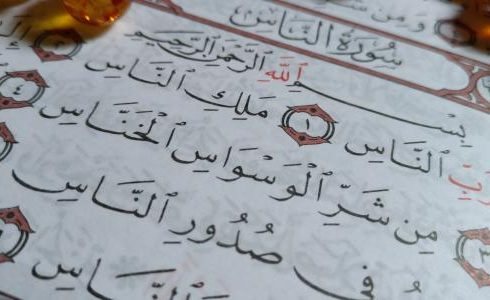 وَمِن
سُورَةُ النَّاسِ
بِسْمِ ٱللَّهِ ٱلرَّحْمَٰنِ ٱلرَّحِيمِ
رَبِّ ٱلنَّاسِ ١ مَلِكِ ٱلنَّاسِ ٢
٣ مِن شَرِّ ٱلْوَسْوَاسِ ٱلْخَنَّاسِ ٤
فِى صُدُورِ ٱلنَّاسِ
ٱلنَّاسِ